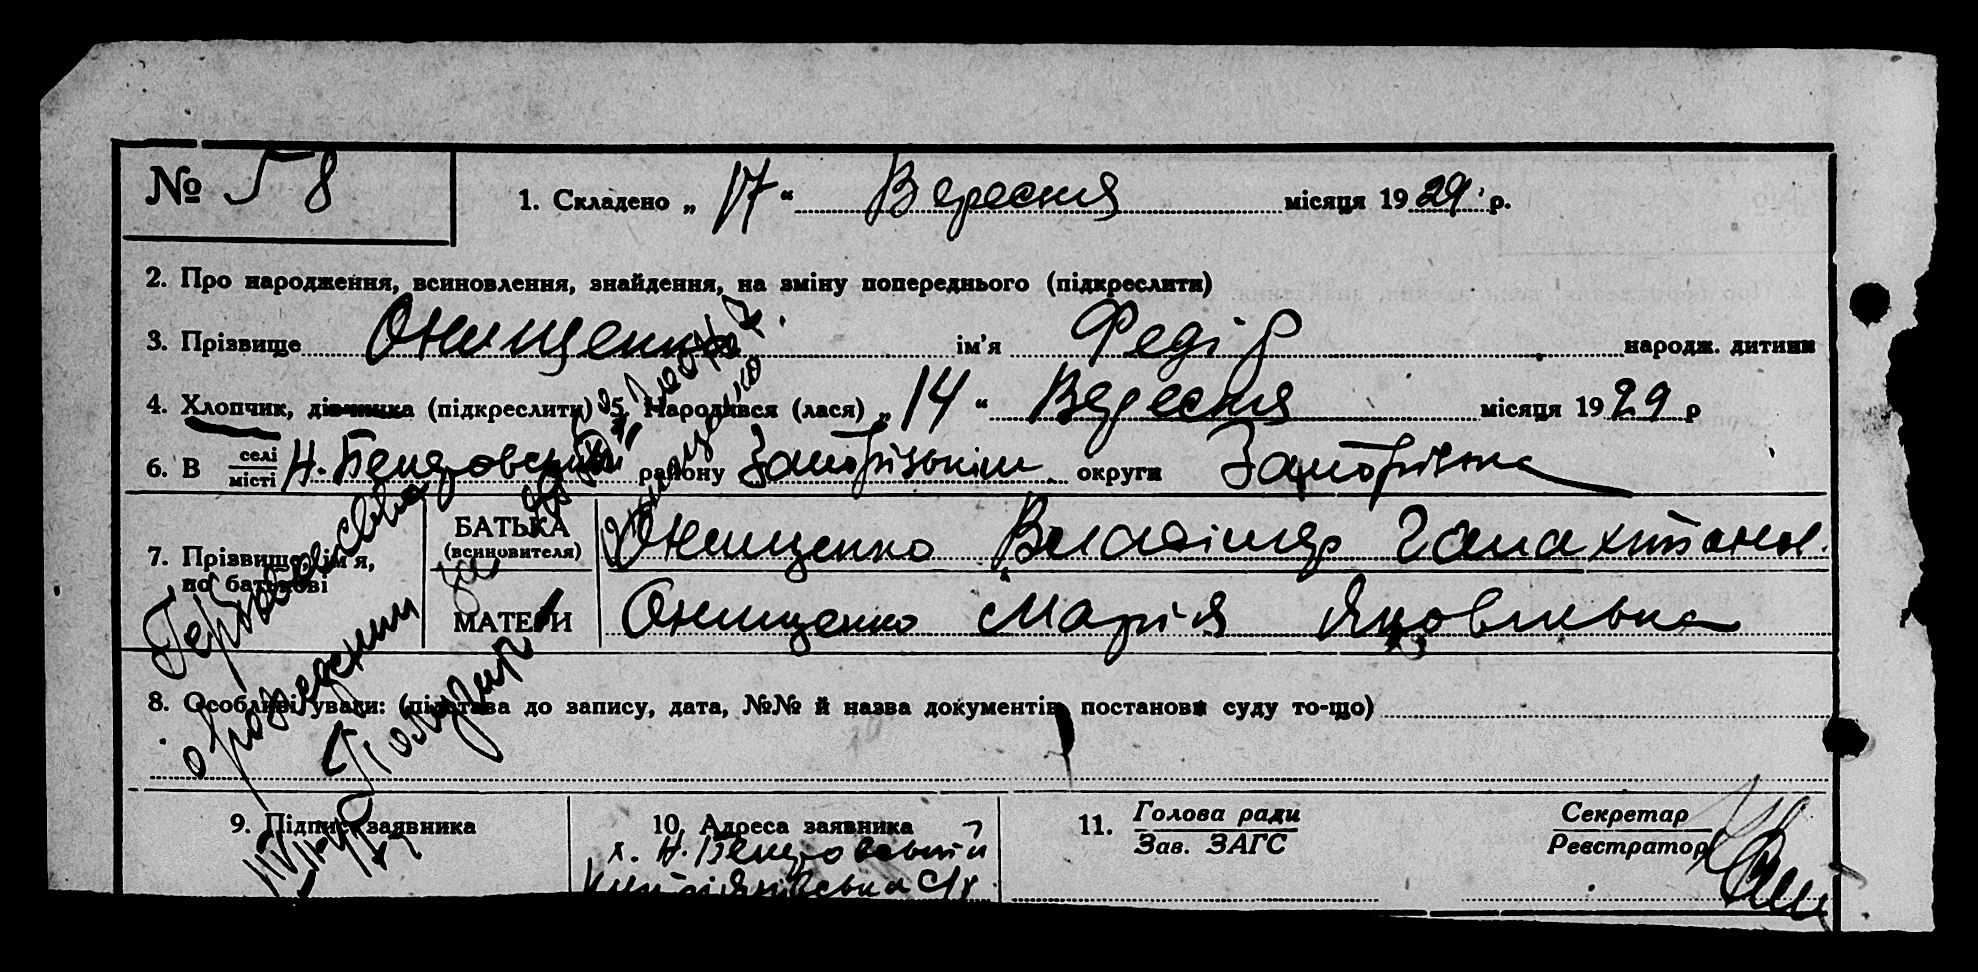 № 58
1. Складено „17“ Вересня місяця 1929 р.
2. Про народження, всиновлення, знайдення, на зміну попереднього (підкреслити)
3. Прізвище Онищенко ім’я Федір народж. дитини
4. Хлопчик, дівчинка (підкреслити) 5. Народився (лася) „14“ Вересня місяця 1929 р
6. В селі місті Н. Бендровський району Запорізькім округи Запорізька
7. Прізвище, ім’я, по батькові
БАТЬКА (всиновителя) Онищенко
МАТЕРИ Онищенко Марія Яковлівна
8. Особливі уваги: (підстава до запису, дата, №№ й назва документів, постанови суду то-що)
о рождении
Получил
Онищенко
9. Підпис заявника
10. Адреса заявника
х. Н. Бендровський
11. Голова ради
Зав. ЗАГС
Секретар
Реєстратор